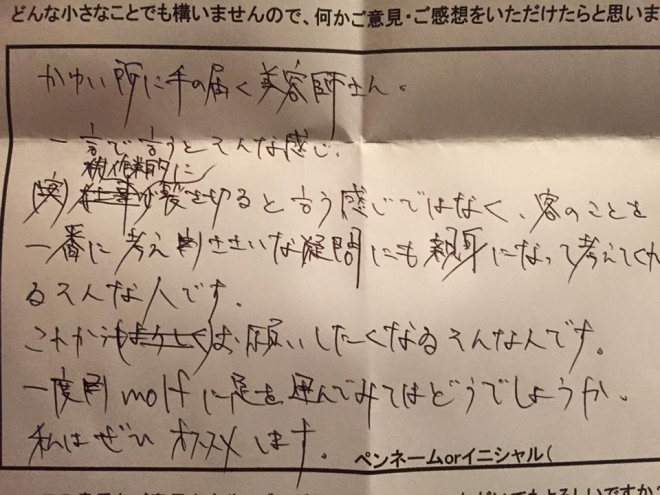 どんな小さなことでも構いませんので、何かご意見・ご感想をいただけたらと思いま
かゆい所に手の届く美容師さん。
一言で言うとそんな感じ。
機作業的に
髪を切ると言う感じではなく、客のことを
一番に考えささいな疑問にも親身になって考えてくれ
るそんな人です。
これからもお願いしたくなるそんな人です。
一度 molf に足を運んでみてはどうでしょうか。
私はぜひオススメします。
ペンネームorイニシャル(